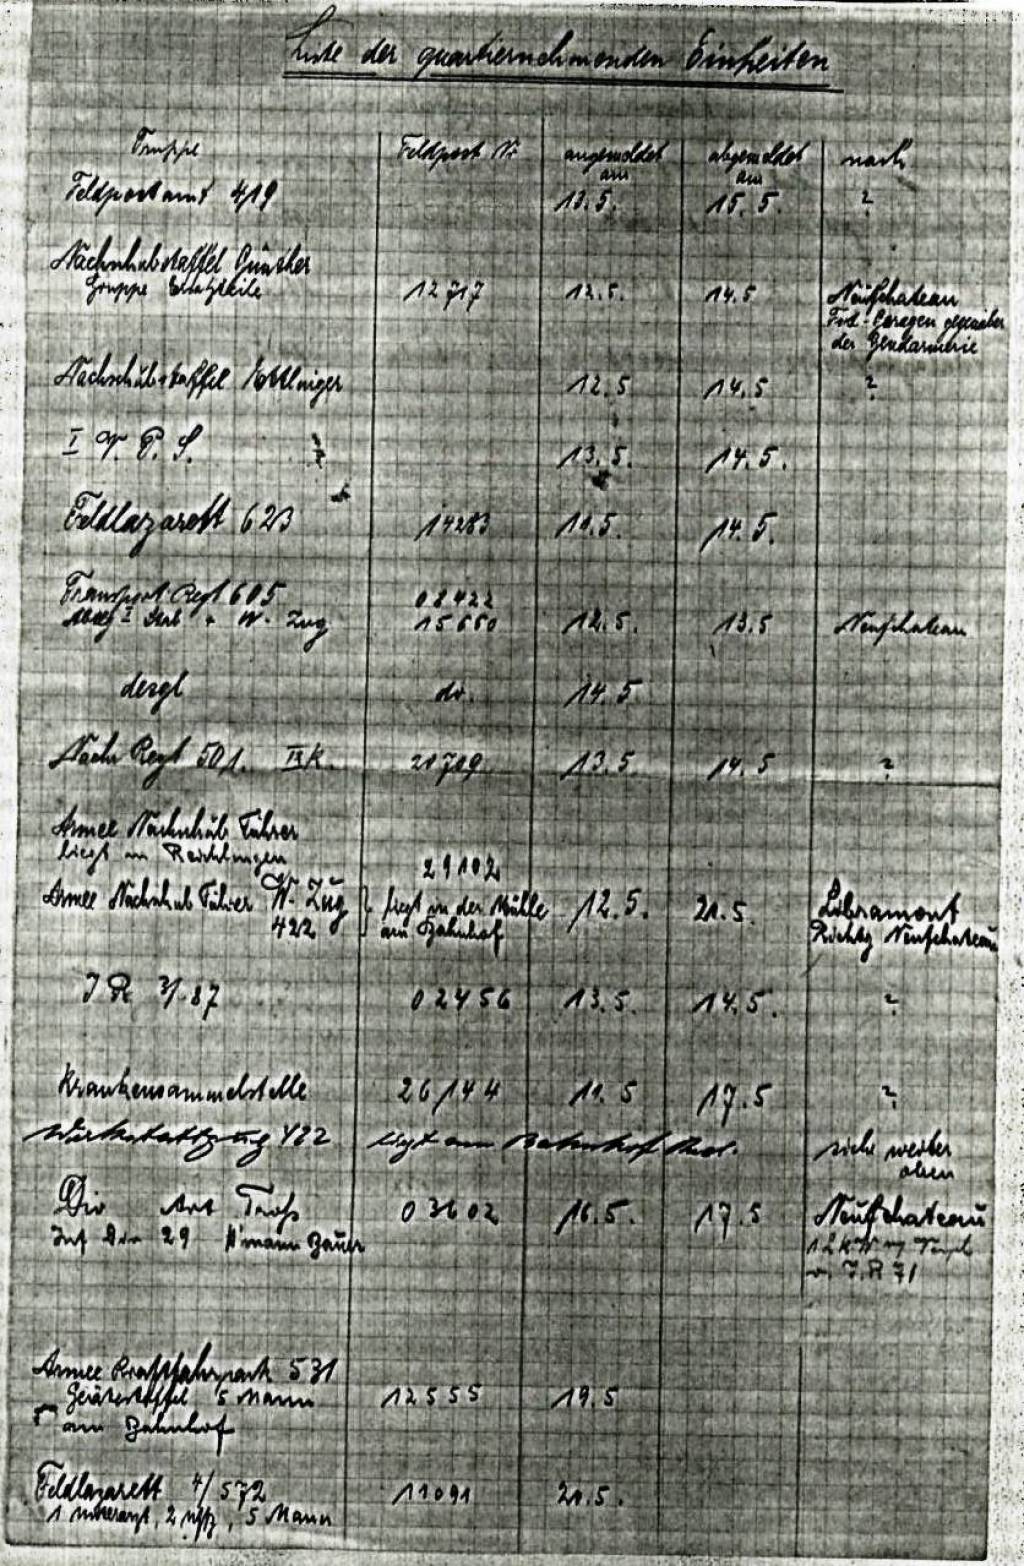 Liste der quartiernehmenden Einheiten
Truppe Feldpost Nr angemeldet am abgemeldet am nach
Feldpostamt 419 13.5. 15.5. ?
Nachschubstaffel Günther
Gruppe Ersatzteile 12717 12.5. 14.5 Neufchateau
Ford-Garagen gegenüber
der Gendarmerie
Nachschubstaffel 12.5 14.5 ?
I 13.5. 14.5.
Feldlazarett 623 14283 11.5. 14.5.
Transport Regt 605 02422
Stab + W. Zug 15650 12.5. 13.5 Neufchateau
desgl do. 14.5
Nachr Regt 501. 21709 13.5. 14.5 ?
Armee Nachschub Führer
liegt in Reichlingen 29102
Armee Nachschub Führer W. Zug 422 } liegt in der Mühle am Bahnhof 12.5. 21.5. Libramont
Richtg Neufchateau
I R 3/87 02456 13.5. 14.5. ?
Krankensammelstelle 26144 11.5 17.5 ?
Werkstattzug 422 liegt am Bahnhof siehe weiter oben
Div Art Tross 03602 16.5. 17.5 Neufchateau
Inf Div 29 H'mann Bauer
I.R 71
Armee Kraftfahrpark 531
Gerätestaffel 5 Mann 12555 19.5
am Bahnhof
Feldlazarett 4/572 11091 20.5.
1 Unterarzt, 2 Uffz, 5 Mann